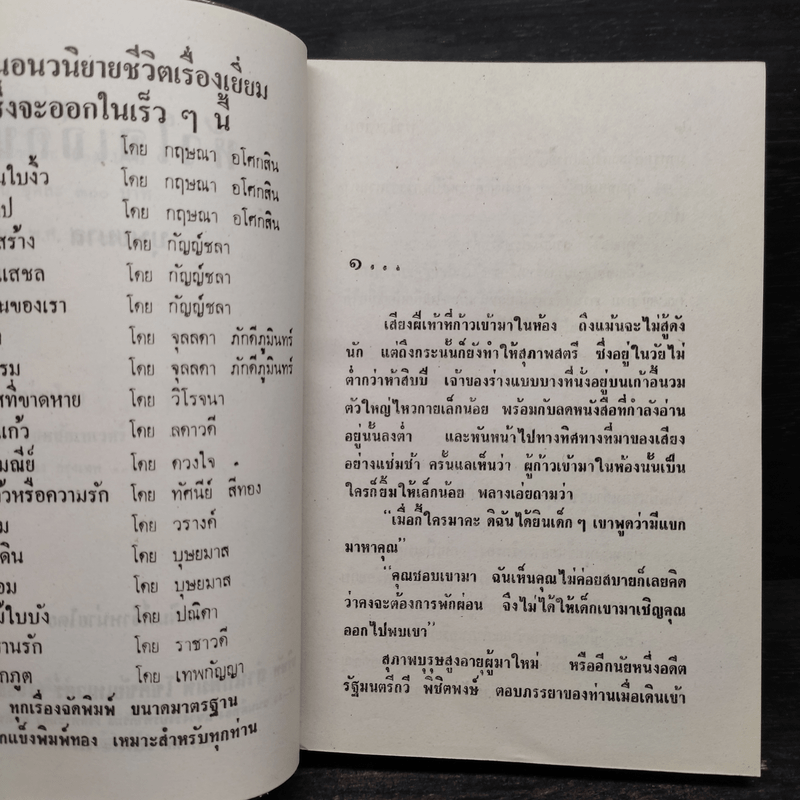 นอนวนิยายชีวิตเรื่องเยี่ยม
จะออกในเร็ว ๆ นี้
โดย กฤษณา อโศกสิน
นใบงิ้ว โดย กฤษณา อโศกสิน
ป โดย กฤษณา อโศกสิน
สร้าง โดย กัญญ์ชลา
แสชล โดย กัญญ์ชลา
มของเรา โดย กัญญ์ชลา
โดย จุลลดา ภักดีภูมินทร์
รม โดย จุลลดา ภักดีภูมินทร์
ที่ขาดหาย โดย วิโรจนา
แก้ว โดย ลดาวดี
มณีย์ โดย ดวงใจ
หรือความรัก โดย ทัศนีย์ สีทอง
ม โดย วรางค์
ดิน โดย บุษยมาส
อม โดย บุษยมาส
ใบบัง โดย ปณิดา
านรัก โดย ราชาวดี
กภูต โดย เทพกัญญา
ทุกเรื่องจัดพิมพ์ ขนาดมาตรฐาน
กแข็งพิมพ์ทอง เหมาะสำหรับทุกท่าน
๑...
เสียงฝีเท้าที่ก้าวเข้ามาในห้อง ถึงแม้นจะไม่สู้ดัง
นัก แต่ถึงกระนั้นก็ยังทำให้สุภาพสตรี ซึ่งอยู่ในวัยไม่
ต่ำกว่าห้าสิบปี เจ้าของร่างแบบบางที่นั่งอยู่บนเก้าอี้นวม
ตัวใหญ่ไหวกายเล็กน้อย พร้อมกับลดหนังสือที่กำลังอ่าน
อยู่นั้นลงต่ำ และหันหน้าไปทางทิศทางที่มาของเสียง
อย่างแช่มช้า ครั้นแลเห็นว่า ผู้ก้าวเข้ามาในห้องนั้นเป็น
ใครก็ยิ้มให้เล็กน้อย พลางเอ่ยถามว่า
“เมื่อกี้ใครมาคะ ดิฉันได้ยินเด็ก ๆ เขาพูดว่ามีแขก
มาหาคุณ”
“คุณชอบเขามา ฉันเห็นคุณไม่ค่อยสบายก็เลยคิด
ว่าคงจะต้องการพักผ่อน จึงไม่ได้ให้เด็กเขามาเชิญคุณ
ออกไปพบเขา”
สุภาพบุรุษสูงอายุผู้มาใหม่ หรืออีกนัยหนึ่งอดีต
รัฐมนตรีกวี พิชิตพงษ์ ตอบภรรยาของท่านเมื่อเดินเข้า